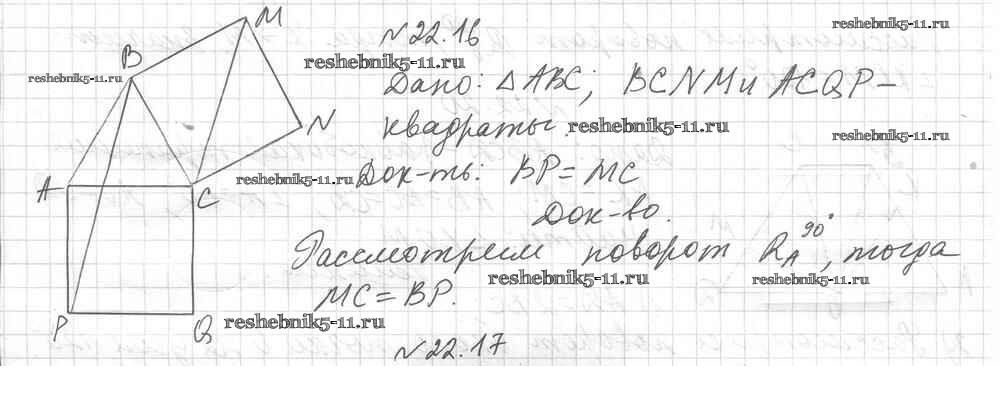 M
B
N
A
C
P
Q
№22.16
Дано: △ABC; BCNM и ACQP –
квадраты.
Док-ть: BP = MC
Док-во.
Рассмотрим поворот R_A^90°, тогда
MC = BP.
№22.17
reshebnik5-11.ru
reshebnik5-11.ru
reshebnik5-11.ru
reshebnik5-11.ru
reshebnik5-11.ru
reshebnik5-11.ru
reshebnik5-11.ru
reshebnik5-11.ru
reshebnik5-11.ru